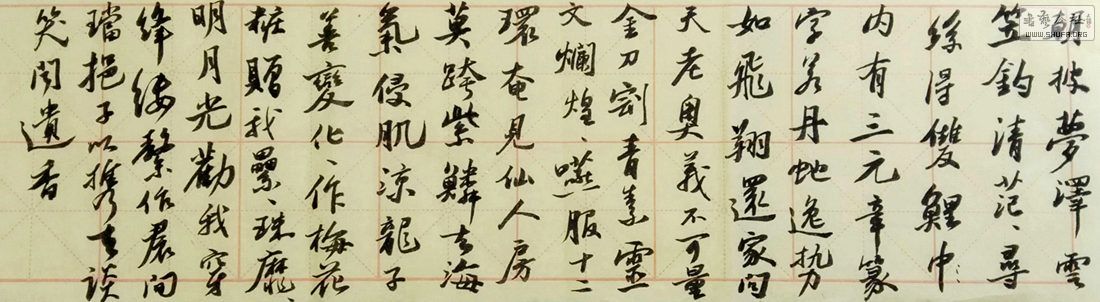 朝披夢澤雲
笠釣清茫、尋
絲得雙鯉中
内有三元章篆
字若丹虵逸势
如飛翔還家问
天老奥義不可量
金刀割青素靈
文爛煌、嚥服十二
環奄見仙人房
莫跨紫鱗去海
氣侵肌凉龍子
善變化、作梅花
粧贈我纍、珠靡、
明月光勸我穿
絳縷繫作裙间
璫挹子以攜去談
笑闻遺香
WWW.SHUFA.ORG